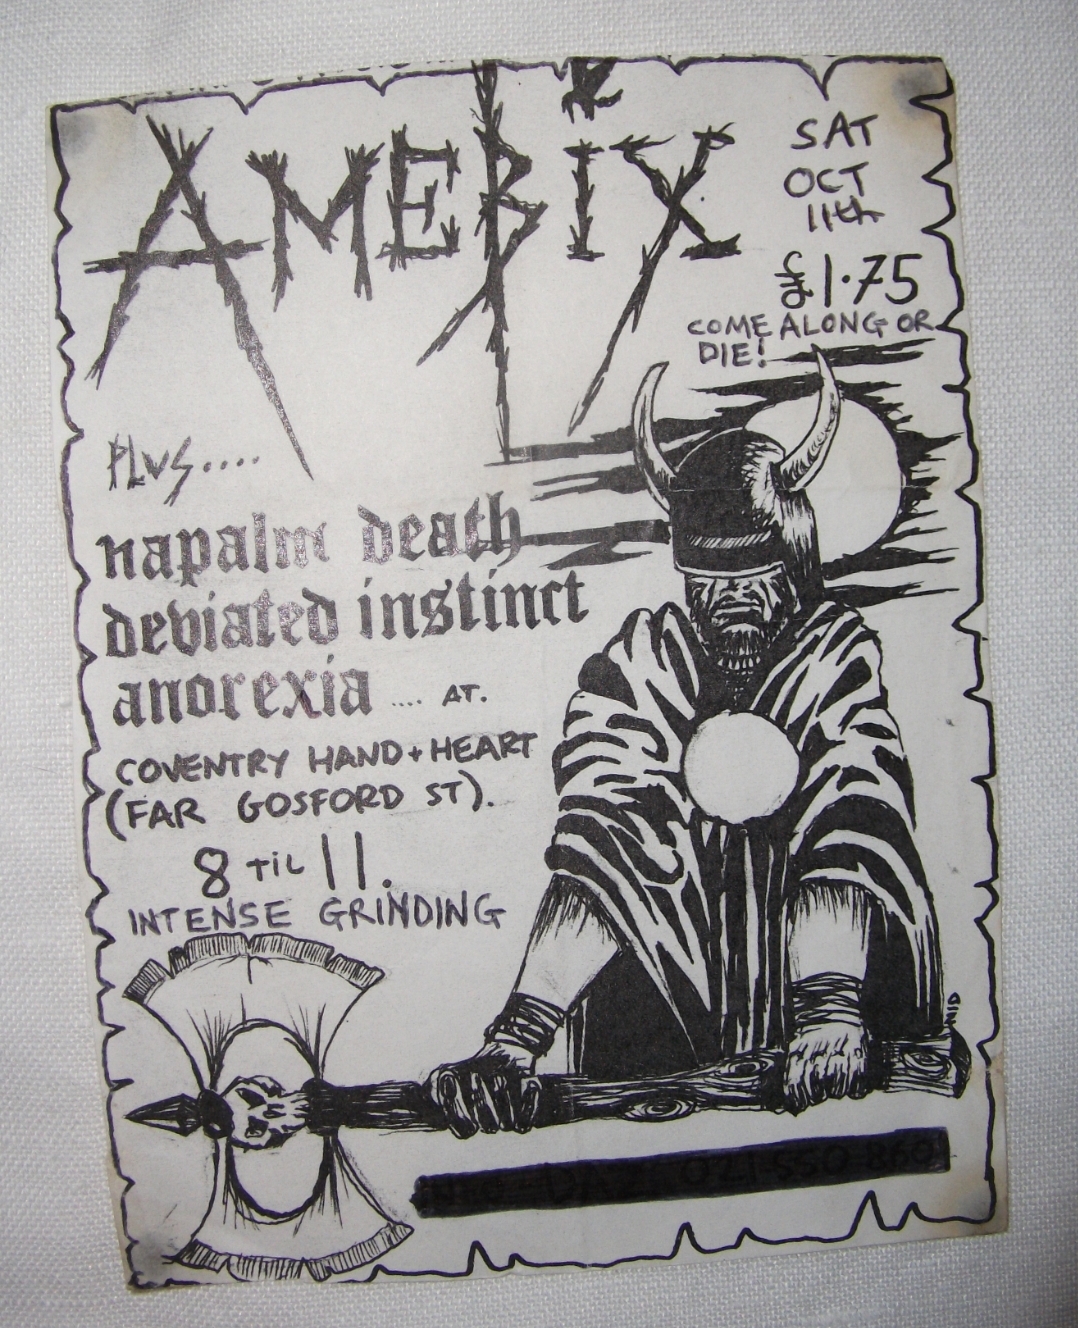 AMEBIX
SAT
OCT
11th
£1.75
COME ALONG OR
DIE!
PLUS....
napalm death
deviated instinct
anorexia .... AT.
COVENTRY HAND + HEART
(FAR GOSFORD ST).
8 TIL 11.
INTENSE GRINDING
MID